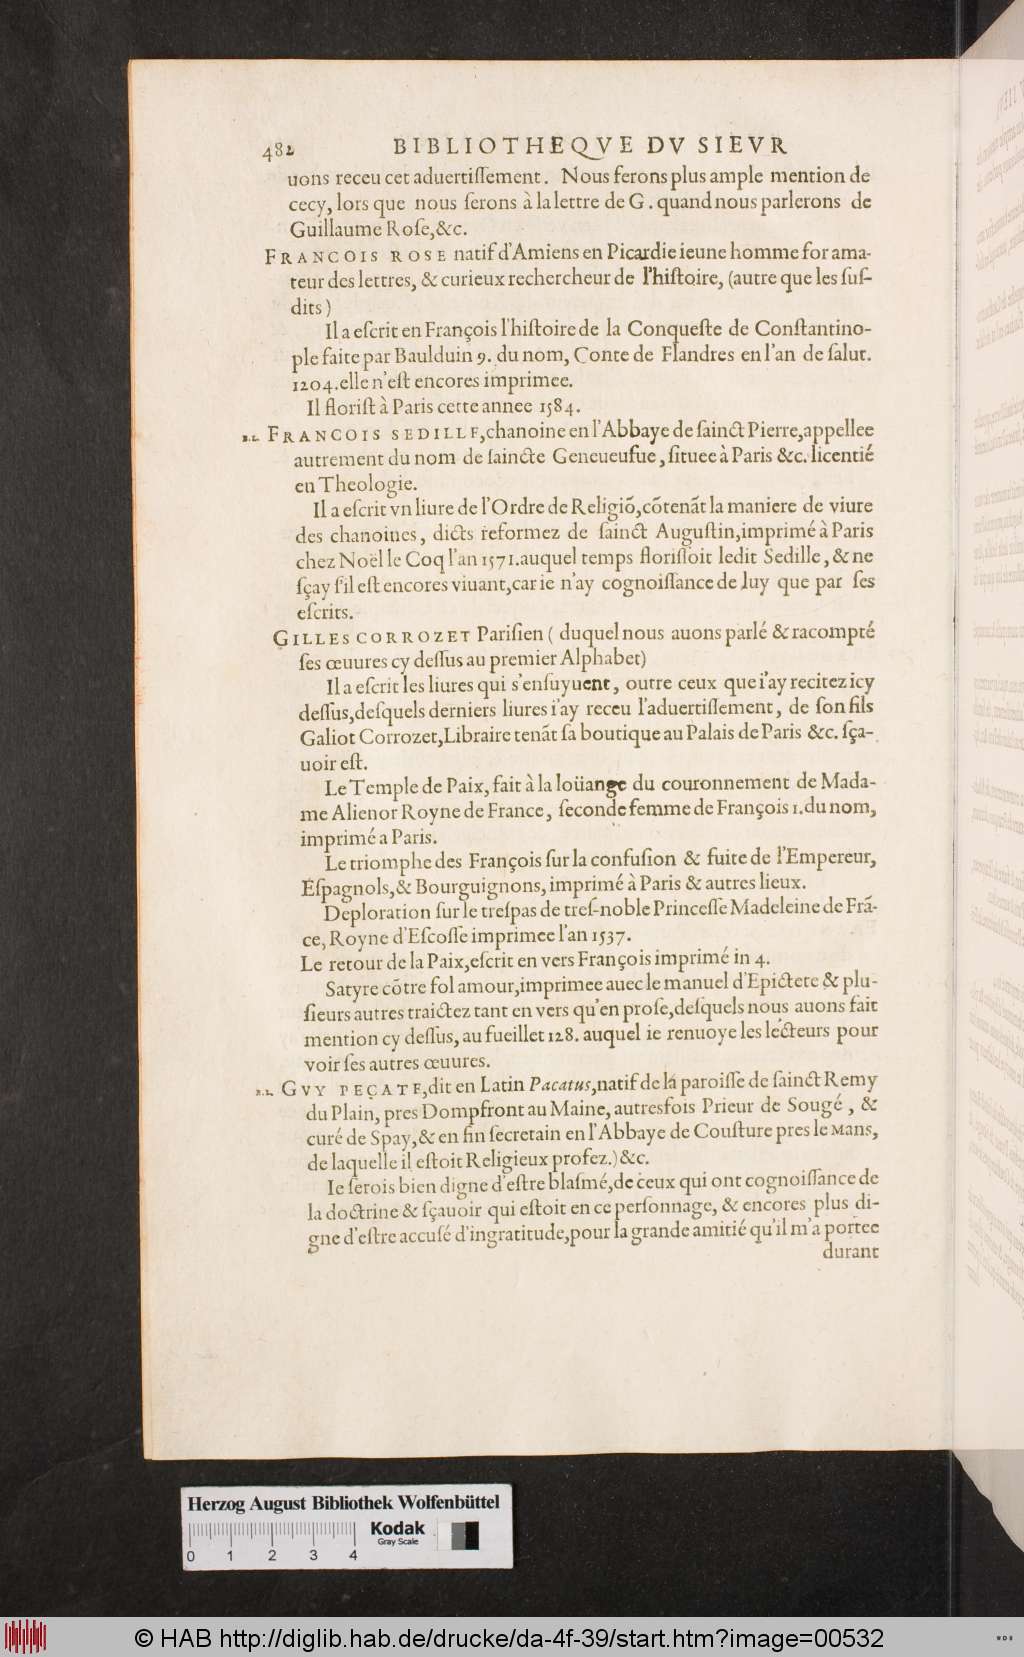 482 BIBLIOTHEQVE DV SIEVR
uons receu cet aduertiſſement. Nous ferons plus ample mention de
cecy, lors que nous ſerons à la lettre de G. quand nous parlerons de
Guillaume Roſe, &c.
FRANCOIS ROSE natif d'Amiens en Picardie ieune homme for ama-
teur des lettres, & curieux rechercheur de l'hiſtoire, (autre que les ſuſ-
dits)
Il a eſcrit en François l'hiſtoire de la Conqueſte de Conſtantino-
ple faite par Baulduin 9. du nom, Conte de Flandres en l'an de ſalut.
1204. elle n'eſt encores imprimee.
Il floriſt à Paris cette annee 1584.
B.L. FRANCOIS SEDILLE, chanoine en l'Abbaye de ſainct Pierre, appellee
autrement du nom de ſaincte Geneueſue, ſituee à Paris &c. licentié
en Theologie.
Il a eſcrit vn liure de l'Ordre de Religiõ, cõtenãt la maniere de viure
des chanoines, dicts reformez de ſainct Auguſtin, imprimé à Paris
chez Noël le Coq l'an 1571. auquel temps floriſſoit ledit Sedille, & ne
ſçay ſ'il eſt encores viuant, car ie n'ay cognoiſſance de luy que par ſes
eſcrits.
GILLES CORROZET Pariſien ( duquel nous auons parlé & racompté
ſes œuures cy deſſus au premier Alphabet)
Il a eſcrit les liures qui s'enſuyuent, outre ceux que i'ay recitez icy
deſſus, deſquels derniers liures i'ay receu l'aduertiſſement, de ſon fils
Galiot Corrozet, Libraire tenãt ſa boutique au Palais de Paris &c. ſça-
uoir eſt.
Le Temple de Paix, fait à la loüange du couronnement de Mada-
me Alienor Royne de France, ſeconde femme de François 1. du nom,
imprimé a Paris.
Le triomphe des François ſur la confuſion & fuite de l'Empereur,
Eſpagnols, & Bourguignons, imprimé à Paris & autres lieux.
Deploration ſur le treſpas de treſ-noble Princeſſe Madeleine de Frã-
ce, Royne d'Eſcoſſe imprimee l'an 1537.
Le retour de la Paix, eſcrit en vers François imprimé in 4.
Satyre cõtre fol amour, imprimee auec le manuel d'Epictete & plu-
ſieurs autres traictez tant en vers qu'en proſe, deſquels nous auons fait
mention cy deſſus, au fueillet 128. auquel ie renuoye les lecteurs pour
voir ſes autres œuures.
B.L. GVY PEÇATE, dit en Latin Pacatus, natif de la paroiſſe de ſainct Remy
du Plain, pres Dompfront au Maine, autresfois Prieur de Sougé, &
curé de Spay, & en fin ſecretain en l'Abbaye de Couſture pres le Mans,
de laquelle il eſtoit Religieux profez.) &c.
Ie ſerois bien digne d'eſtre blaſmé, de ceux qui ont cognoiſſance de
la doctrine & ſçauoir qui eſtoit en ce perſonnage, & encores plus di-
gne d'eſtre accuſé d'ingratitude, pour la grande amitié qu'il m'a portee
durant
Herzog August Bibliothek Wolfenbüttel
Kodak
Gray Scale
0 1 2 3 4
© HAB http://diglib.hab.de/drucke/da-4f-39/start.htm?image=00532